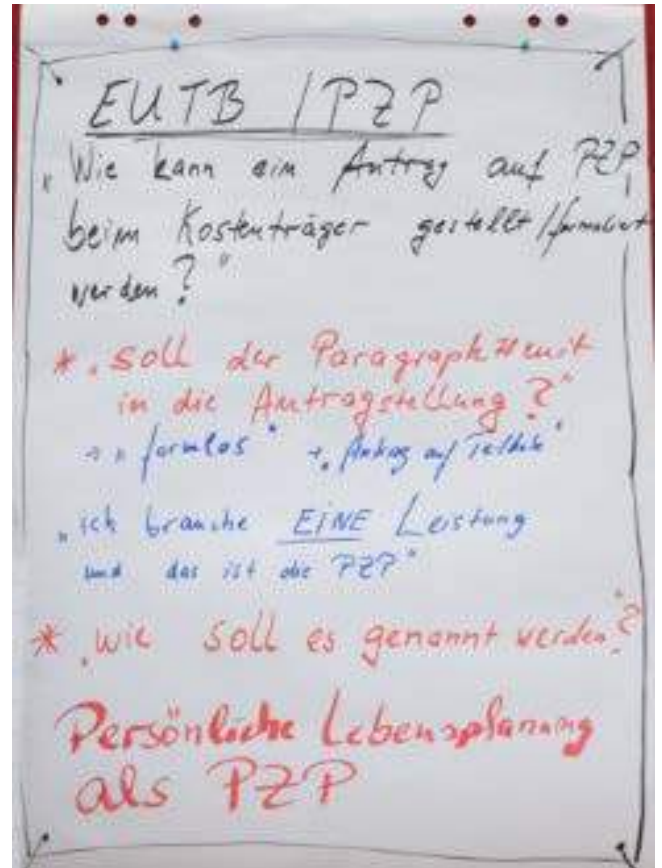 EUTB / PZP
„Wie kann ein Antrag auf PZP
beim Kostenträger gestellt/formuliert
werden?"
* „soll der Paragraph mit
in die Antragstellung?"
→ „formlos" → „Antrag auf Teilhabe"
„ich brauche EINE Leistung
und das ist die PZP"
* „wie soll es genannt werden?"
Persönliche Lebensplanung
als PZP